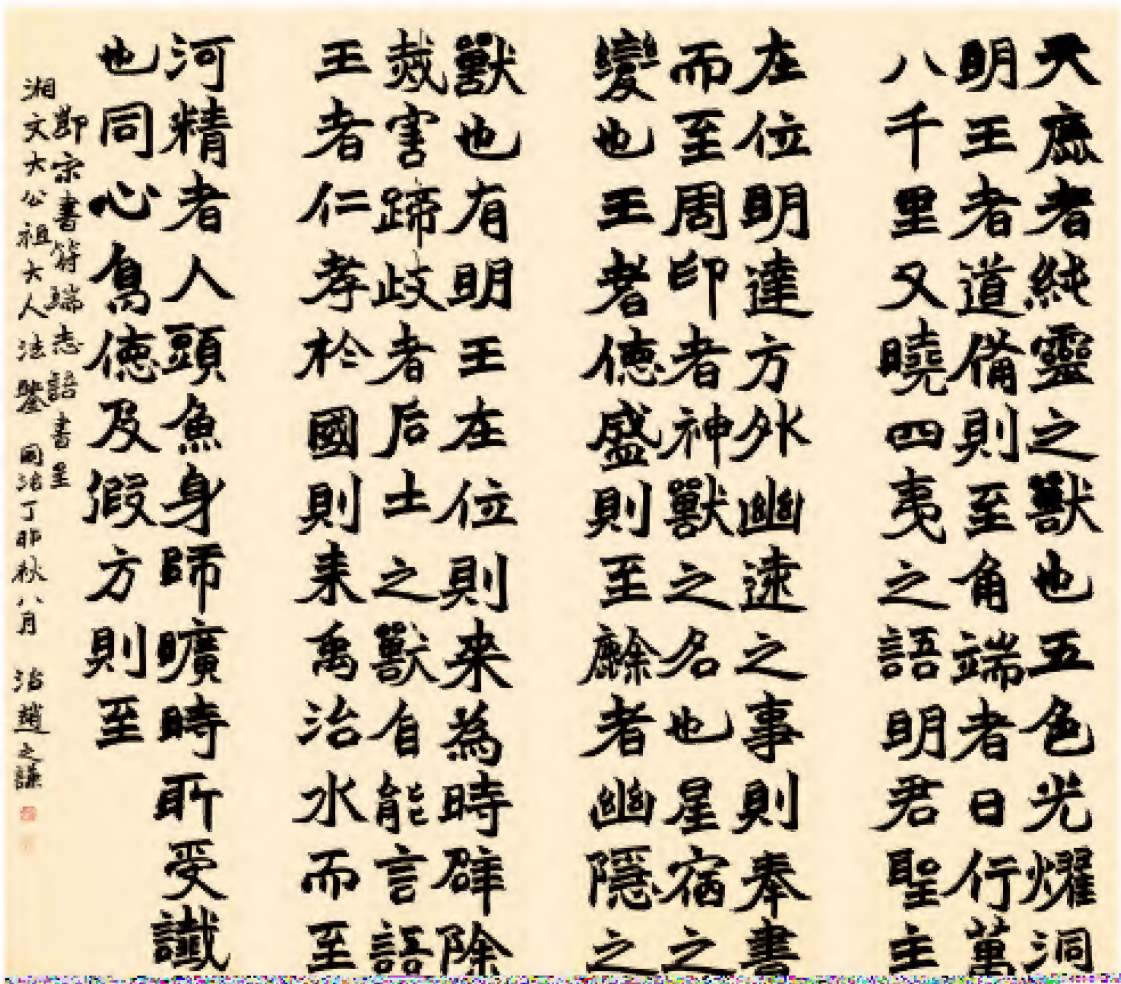 天鹿者純靈之獸也五色光燿洞
明王者道備則至角端者日行萬
八千里又曉四夷之語明君聖主
在位明達方外幽遠之事則奉書
而至周印者神獸之名也星宿之
變也王者德盛則至䴜者幽隱之
獸也有明王在位則来為時辟除
烖害蹄歧者后土之獸自能言語
王者仁孝於國則来禹治水而至
河精者人頭魚身師曠時所受讖
也同心鳥德及假方則至
鄭宗書符瑞志語書呈
湘文大公祖大人法鑒 同治丁卯秋八月 治趙之謙